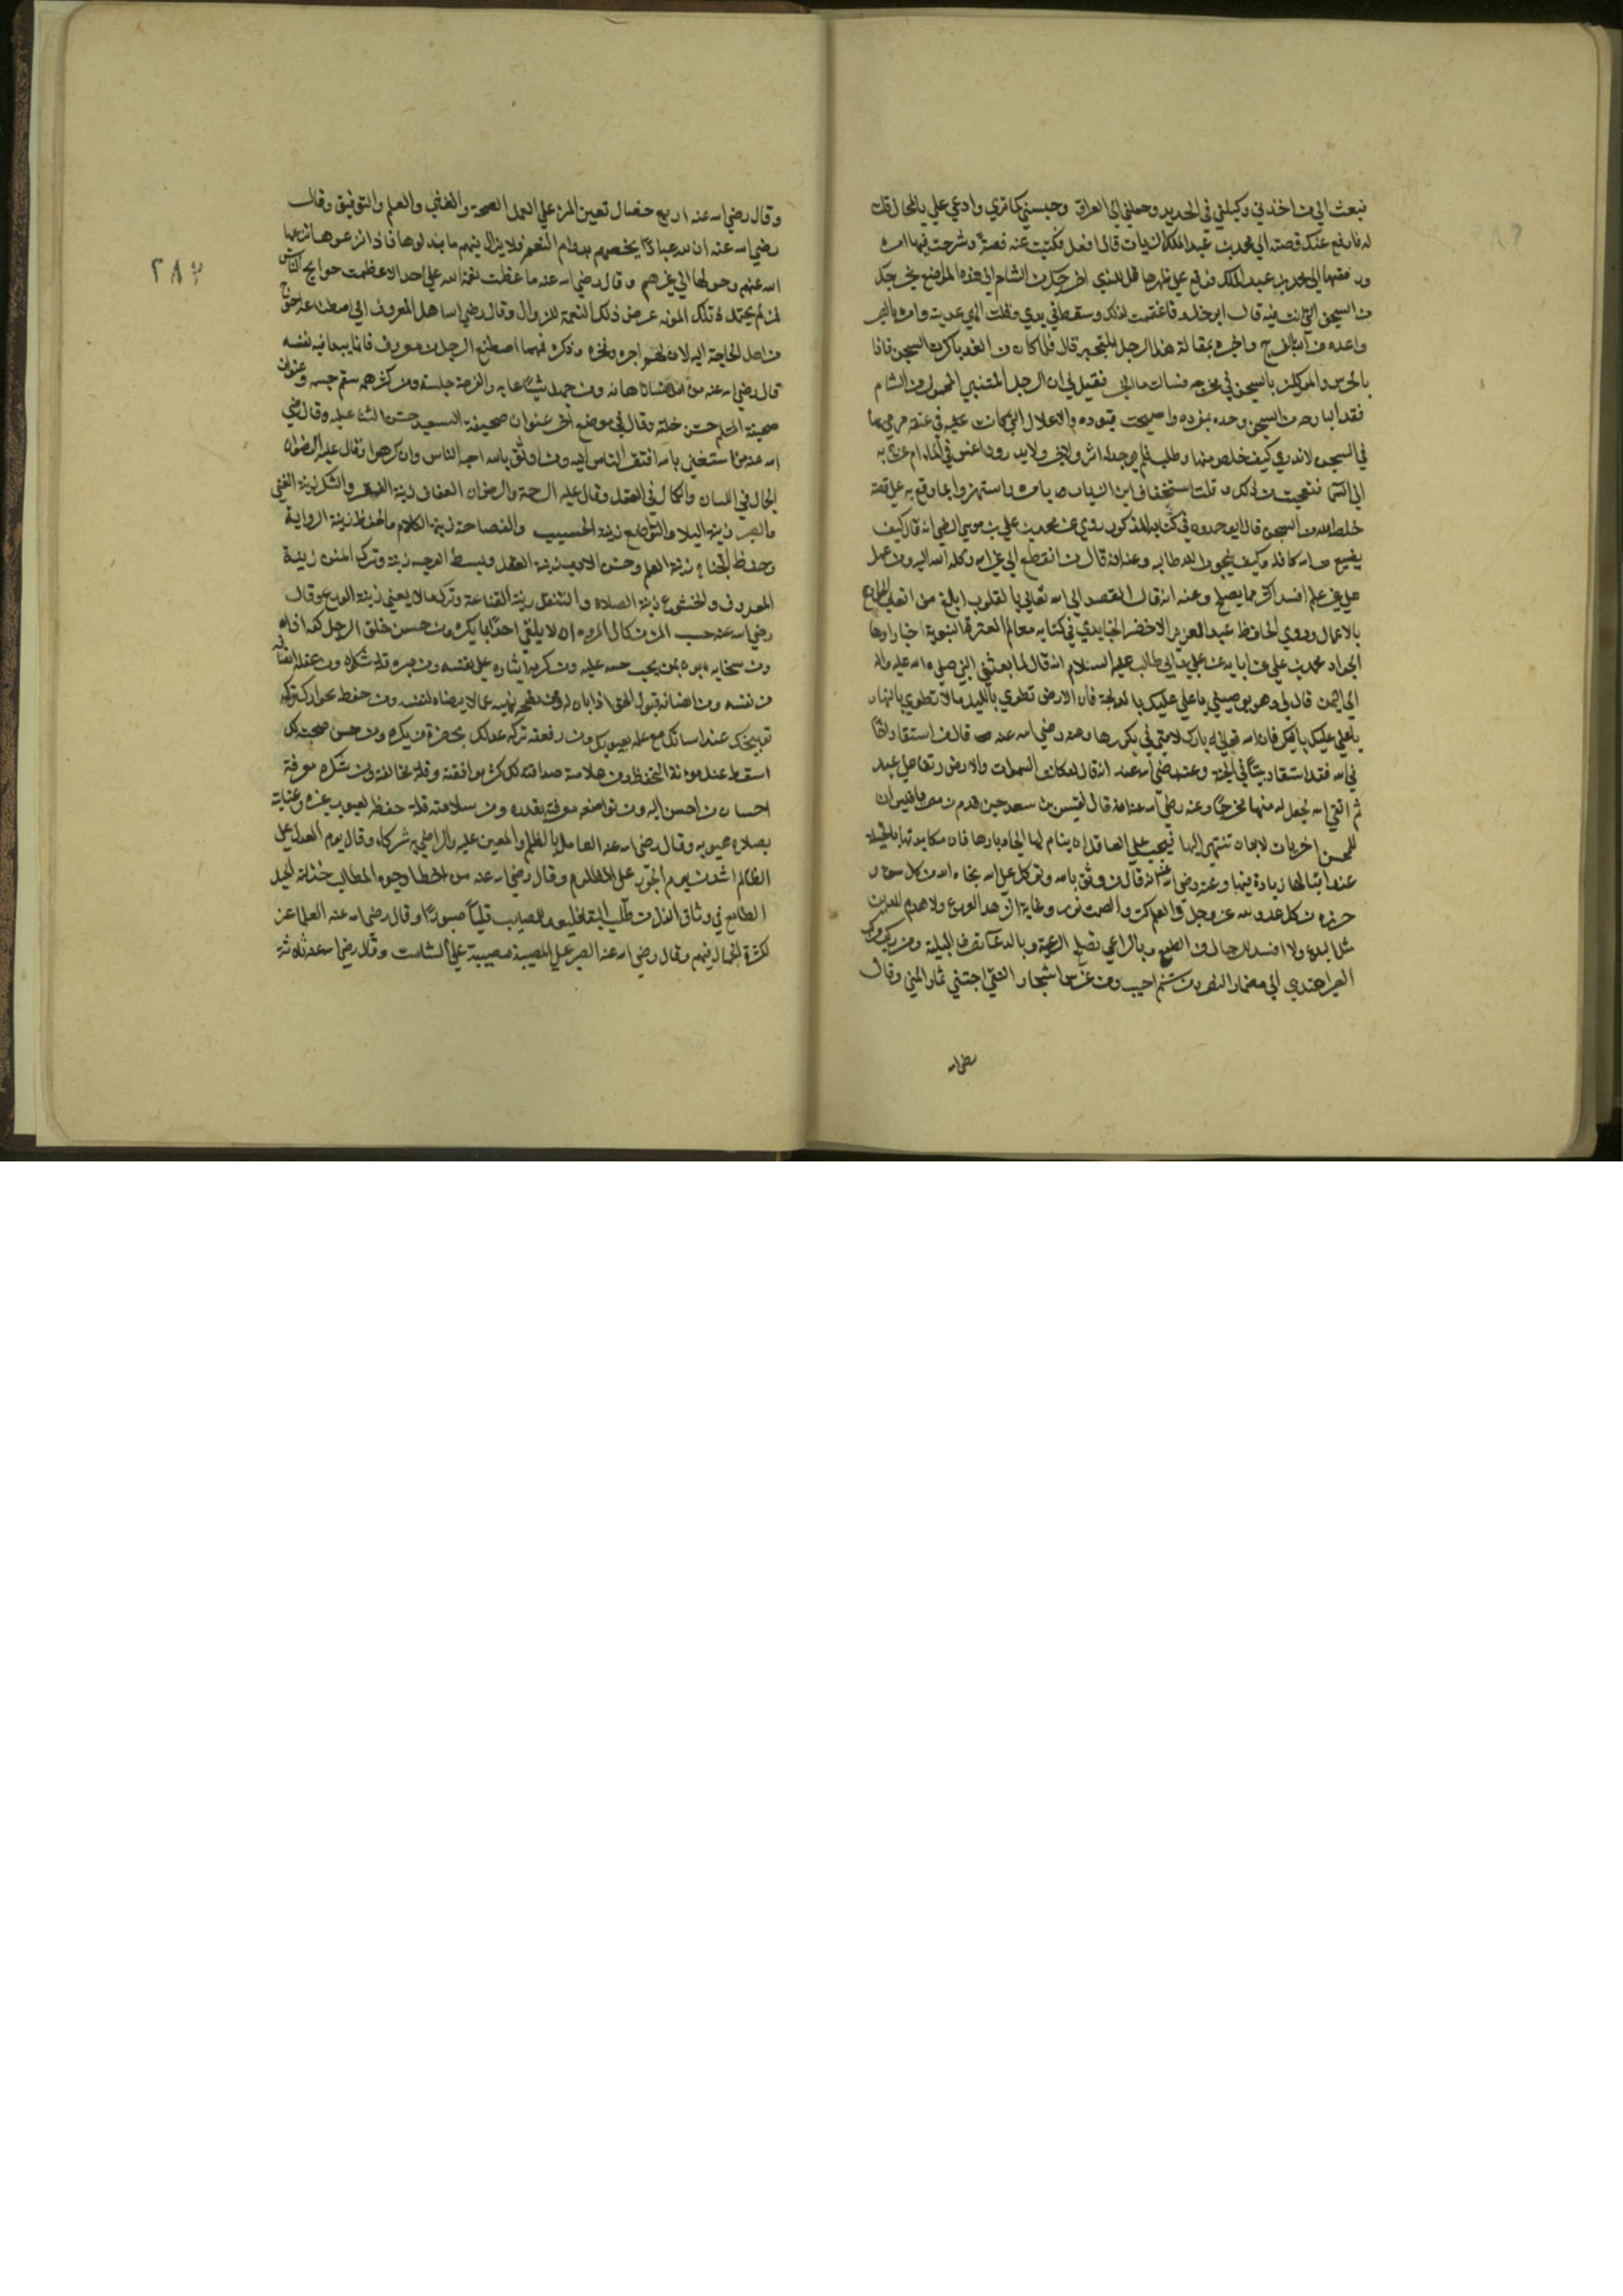 فبعث الي من اخذني وكبلني في الحديد وحملني الى العراق وحبسني كما تري وادعي علي بالمحال قلت
له فارفع عنك قصته الي محمد بن عبد الملك الزيات قال افعل فكتبت عنه قصة وشرحت فيها امره
ورفعتها الى محمد بن عبد الملك فوقع علي ظهرها قل للذي اخرجك من الشام الي هذه المواضع يخرجك
من السجن الذي انت فيه قال ابو خالد فاغتممت لذلك وسقط في يدي وقلت الي غد اتيه وامره بالصبر
واعده من الله بالفرج واخبره بمقالة هذا الرجل المتجبر قال فلما كان من الغد باكرت السجن فاذا
بالحرس والموكلين بالسجن في هرج فسالت ما الخبر فقيل لي ان الرجل المتنبي المحمول من الشام
فقد البارحه من السجن وحده بمفرده واصبحت قيوده والاغلال التي كانت عليه في عنقه مرمي بها
في السجن لا ندري كيف خلص منها وطلب فلم يوجد له اثر ولا خبر ولا يدرون اغمس في الماء ام عرج به
الي السما فتعجبت من ذلك وقلت استخفاف ابن الزيات بامره واستهزاوه بما وقع به علي قصته
خلصه الله من السجن قال ابن حمدون في كتابه المذكور روي عن محمد بن علي بن موسي الرضي انه قال كيف
يضيع من الله كافله وكيف ينجو من الله طالبه وعنه انه قال من انقطع الي غير الله وكله الله اليه ومن عمل
علي غير علم افسد اكثر مما يصلح وعنه انه قال القصد الي الله تعالي بالقلوب ابلغ من اتعاب الجوارح
بالاعمال وروي الحافظ عبد العزيز بن الاخضر الجنابدي في كتابه معالم العترة النبوية اخبارا رواها
الجواد محمد بن علي عن ابايه عن علي بن ابي طالب عليهم السلام انه قال لما بعثني النبي صلي الله عليه واله
الي اليمن قال لي وهو يوصيني يا علي عليك بالدلجة فان الارض تطوي بالليل ما لا تطوي بالنهار
يا علي عليك بالبكر فان الله تعالي بارك لامتي في بكورها وعنه رضي الله عنه قال من استفاد اخا
في الله فقد استفاد بيتا في الجنة وعنه رضي الله عنه انه قال لو كانت السموات والارض رتقا علي عبد
ثم اتقي الله لجعل له منها مخرجا وعنه رضي الله عنه انه قال لقيس بن سعد حين قدم من مصر يا قيس ان
للمحن اخريات لا بد ان تنتهي اليها فيجب علي العاقل ان ينام لها الي ادبارها فان مكايدتها بالحيلة
عند اقبالها زيادة فيها وعنه رضي الله عنه انه قال من وثق بالله وتوكل علي الله نجاه الله من كل سوء و
حرزه من كل عدو عز وجل والعلم كنز والصمت نور وغاية الزهد الورع ولا هدم للدين
مثل البدع ولا افسد للرجال من الطمع وبالراعي تصلح الرعية وبالدعا تصرف البلية ومن ركب مركب
الصبر اهتدي الي مضمار النصر ومن شتم اجيب ومن غرس اشجار التقي اجتني ثمار المني وقال
وقال رضي الله عنه اربع خصال تعين المرء علي العمل الصحة والغني والعلم والتوفيق وقال
رضي الله عنه ان لله عبادا يخصهم بدوام النعم فلا يزال فيهم ما بذلوها فاذا نزعوها نزعها
الله عنهم وحولها الي غيرهم وقال رضي الله عنه ما عظمت نعمة الله علي احد الا عظمت حوايج الناس
فمن لم يحتمل تلك المونه عرض تلك النعمة للزوال وقال رضي الله عنه اهل المعروف الي اصطناعه احوج
من اهل الحاجة اليه لان لهم اجره وفخره وذكره فمهما اصطنع الرجل من معروف فانما يبدا فيه بنفسه
قال رضي الله عنه من امل انسانا هابه ومن جهل شيئا عابه والفرصة خلسة ومن كثر همه سقم جسمه وعنوان
صحيفة المسلم حسن خلقه وقال في موضع اخر عنوان صحيفة السعيد حسن الثنا عليه وقال رضي
الله عنه من استغني بالله افتقر الناس اليه ومن اتقي الله احبه الناس وان كرهوا وقال عليه الرضوان
الجمال في اللسان والكمال في العقل وقال عليه الرحمة والرضوان العفاف زينة الفقر والشكر زينة الغني
والصبر زينة البلا والتواضع زينة الحسب والفصاحة زينة الكلام والحفظ زينة الرواية
وحفظ الجناح زينة العلم وحسن الادب زينة العقل وبسط الوجه زينة وترك المن زينة
المعروف والخشوع زينة الصلاة والتنفل زينة القناعة وترك ما لا يعني زينة الورع وقال
رضي الله عنه حسب المرء من كمال المروءة ان لا يلقي احدا بما يكره ومن حسن خلق الرجل كفه اذاه
ومن سخايه بره بمن يجب حقه عليه ومن كرمه ايثاره علي نفسه ومن صبره قلة شكواه ومن عقله انصافه
من نفسه ومن انصافه قبول الحق اذا بان له ومن نصحه نهيه عما لا يرضاه لنفسه ومن حفظ جوارك تركه
توبيخك عند اساتك مع علمه بعيوبك ومن رفقه تركه عذلك بحضرة من يكره ومن حسن صحبته لك
اسقاطه عنك مونة التحفظ ومن علامة صداقته لك كثرة موافقته وقلة مخالفته ومن شكره معرفة
احسان من احسن اليه ومن تواضعه معرفته بقدره ومن سلامته قلة حفظه لعيوب غيره وعنايته
بصلاح عيوبه وقال رضي الله عنه العامل بالظلم والمعين عليه والراضي به شركاء وقال يوم العدل علي
الظالم اشد من يوم الجور علي المظلوم وقال رضي الله عنه من اخطا وجوه المطالب خذلته الحيل
الطامع في وثاق الذل من طلب البقا فليعد للمصايب قلبا صبورا وقال رضي الله عنه العلما غرباء
لكثرة الجهال بينهم وقال رضي الله عنه الصبر علي المصيبة مصيبة علي الشامت وقال رضي الله عنه ثلاثة
٢٨٣